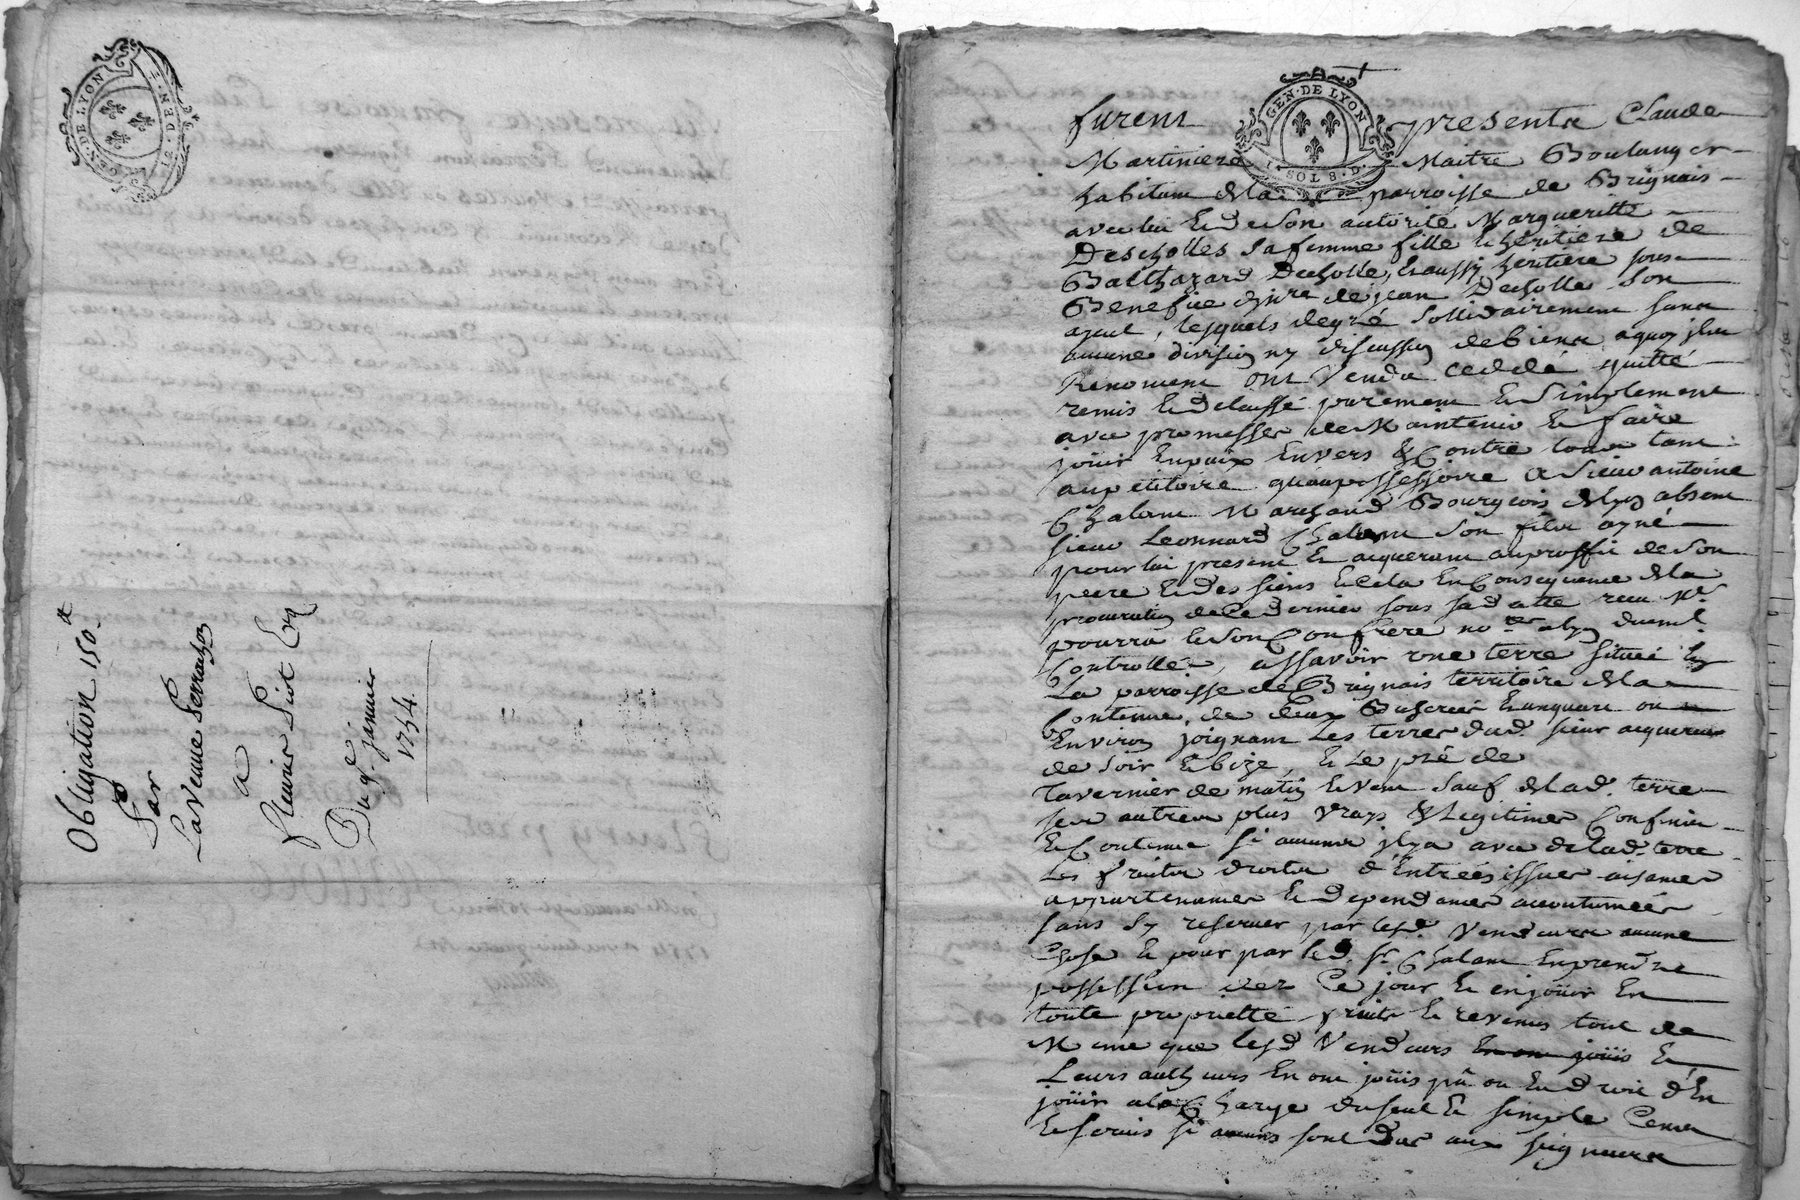 GEN·DE LYON
Obligation 150ᵗᵗ
Par
La Veuve Perrachon
a
fleurie Piot
Du 9ᵉ janvier
1754.
GEN·DE LYON
1·SOL 8 D
furent presents Claude
Martiniere Maitre Boulanger
habitant de la parroisse de Brignais
avec lui et de son autorité Margueritte
Descholles sa femme fille et héritiere de
Balthazard Decholle, et aussy heritiere sous
Benefice d'jnre de jean Decholle son
ayeul, lesquels de gré sollidairement sans
aucune division ny discussion de biens a quoy jls
Renoncent ont Vendu ceddé quitté
remis et delaissé purement et simplement
avec promesses de Maintenir et faire
joüir en paix Envers & Contre tous tant
au petitoire qu'au possessoire a sieur antoine
Chalan Marchand Bourgeois de lyon absent
sieur Leonnard Chalan son fils ayné
pour lui present et acquerant au proffit de son
pere et des siens et cela En Consequence de la
procuration de Ce dernier sous sa datte recu Mᵉ
pourra et son Confrere noʳᵉˢ a lyon duemᵗ
Controllé, assavoir une terre située En
La parroisse de Brignais territoire de la
Contenue de deux Bicherées et un quart ou
Environ joignant Les terres dud. sieur acquereur
de soir et bize, et Le pré de
Tavernier de matin et Vent sauf de lad. terre
ses autres plus vrays & Legitimes Confins
et Contenue si aucuns jl y a avec de lad. terre
Les fruits droits d'Entrées issues aisances
appartenances et dependances accoutumées
sans s'y reserver par lesd. Vendeurs aucune
Chose et pour par led. Sʳ Chalan En prendre
possession dez Ce jour et en joüir En
toute proprietté fruits et revenus tout de
Meme que lesd Vendeurs joüis et
Leurs autheurs En ont joüis pû ou Eu droit d'En
joüir a la Charge du seul et simple Cens
et servis si aucuns sont Dus aux seigneurs